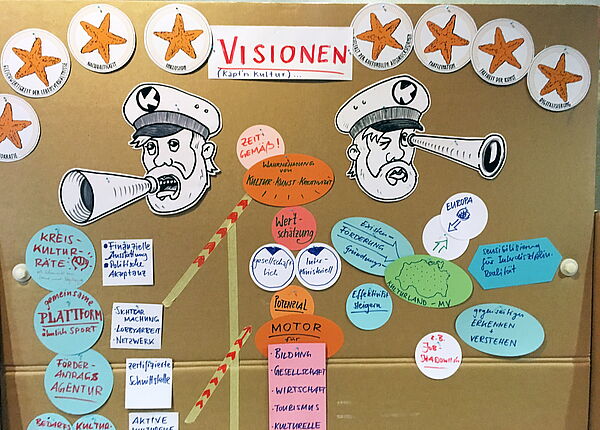 NACHHALTIGKEIT
INKLUSION
VISIONEN
(Käpt'n Kultur)...
PARTIZIPATION
FREIHEIT DER KUNST
DIGITALISIERUNG
K
K
ZEIT-
GEMÄß!
WAHRNEHMUNG
VON
KULTUR-KUNST-KREATIVITÄT
Wert-
schätzung
gesellschaft-
lich
inter-
ministeriell
POTENZIAL
MOTOR
für
• BILDUNG
• GESELLSCHAFT
• WIRTSCHAFT
• TOURISMUS
• KULTURELLE
KREIS-
KULTUR-
RÄTE
• Finanzielle
Ausstattung
• Politische
Akzeptanz
gemeinsame
PLATTFORM
ähnlich SPORT
SICHTBAR
MACHUNG
• LOBBYARBEIT
• NETZWERK
FÖRDER-
ANTRAGS
AGENTUR
zertifizierte
Schnittstelle
BEDARFS
KULTUR
AKTIVE
KULTURELLE
FÖRDERUNG
EUROPA
KULTURLAND-MV
Effektivität
steigern
sensibilisierung
für Interdisziplin.
Realität
gegenseitiges
ERKENNEN
VERSTEHEN
z.B.
JOB-
SHADOWING